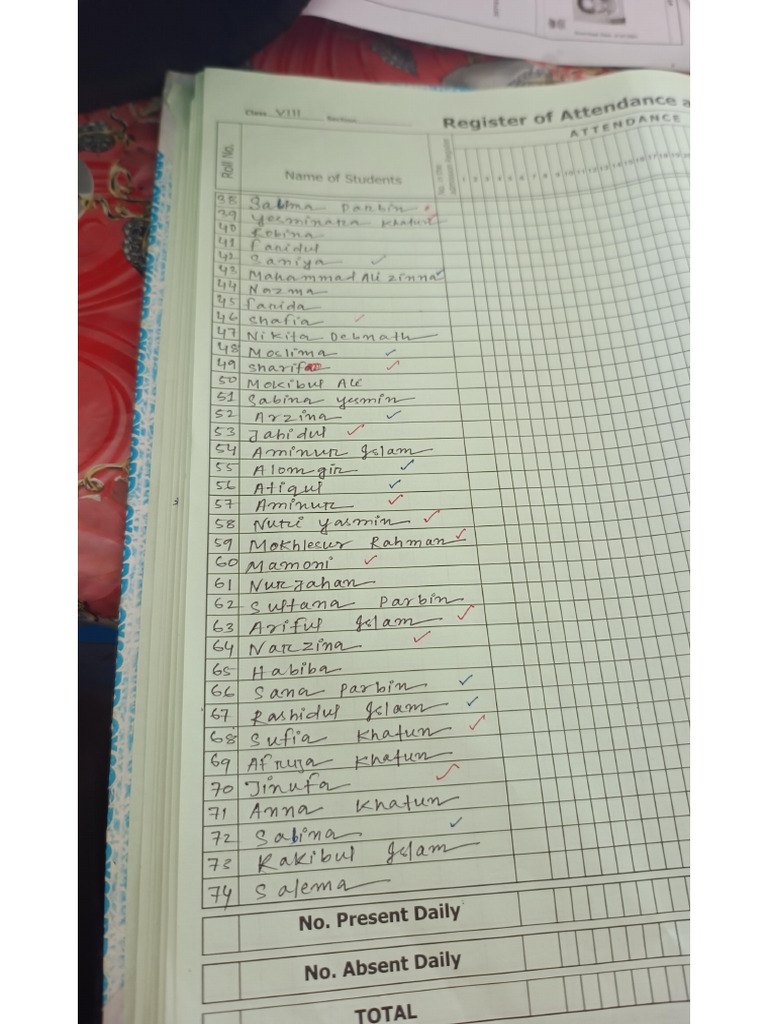 Class VIII Section
Register of Attendance a
ATTENDANCE
Roll No.
Name of Students
No. in the Admission Register
38 Salma Parbin
39 Yesminara Khatun
40 Robina
41 Faridul
42 Saniya
43 Mahammad Ali Zinna
44 Nazma
45 Farida
46 Shafia
47 Nikita Debnath
48 Moslima
49 Sharifa
50 Mokibul Ali
51 Sabina Yesmin
52 Arzina
53 Jahidul
54 Aminur Islam
55 Alomgir
56 Atiqul
57 Aminur
58 Nutri Yasmin
59 Mokhlesur Rahman
60 Mamoni
61 Nurjahan
62 Sultana Parbin
63 Ariful Islam
64 Narzina
65 Habiba
66 Sana Parbin
67 Rashidul Islam
68 Sufia Khatun
69 Afruja Khatun
70 Jinufa
71 Anna Khatun
72 Sabina
73 Rakibul Islam
74 Salema
No. Present Daily
No. Absent Daily
TOTAL